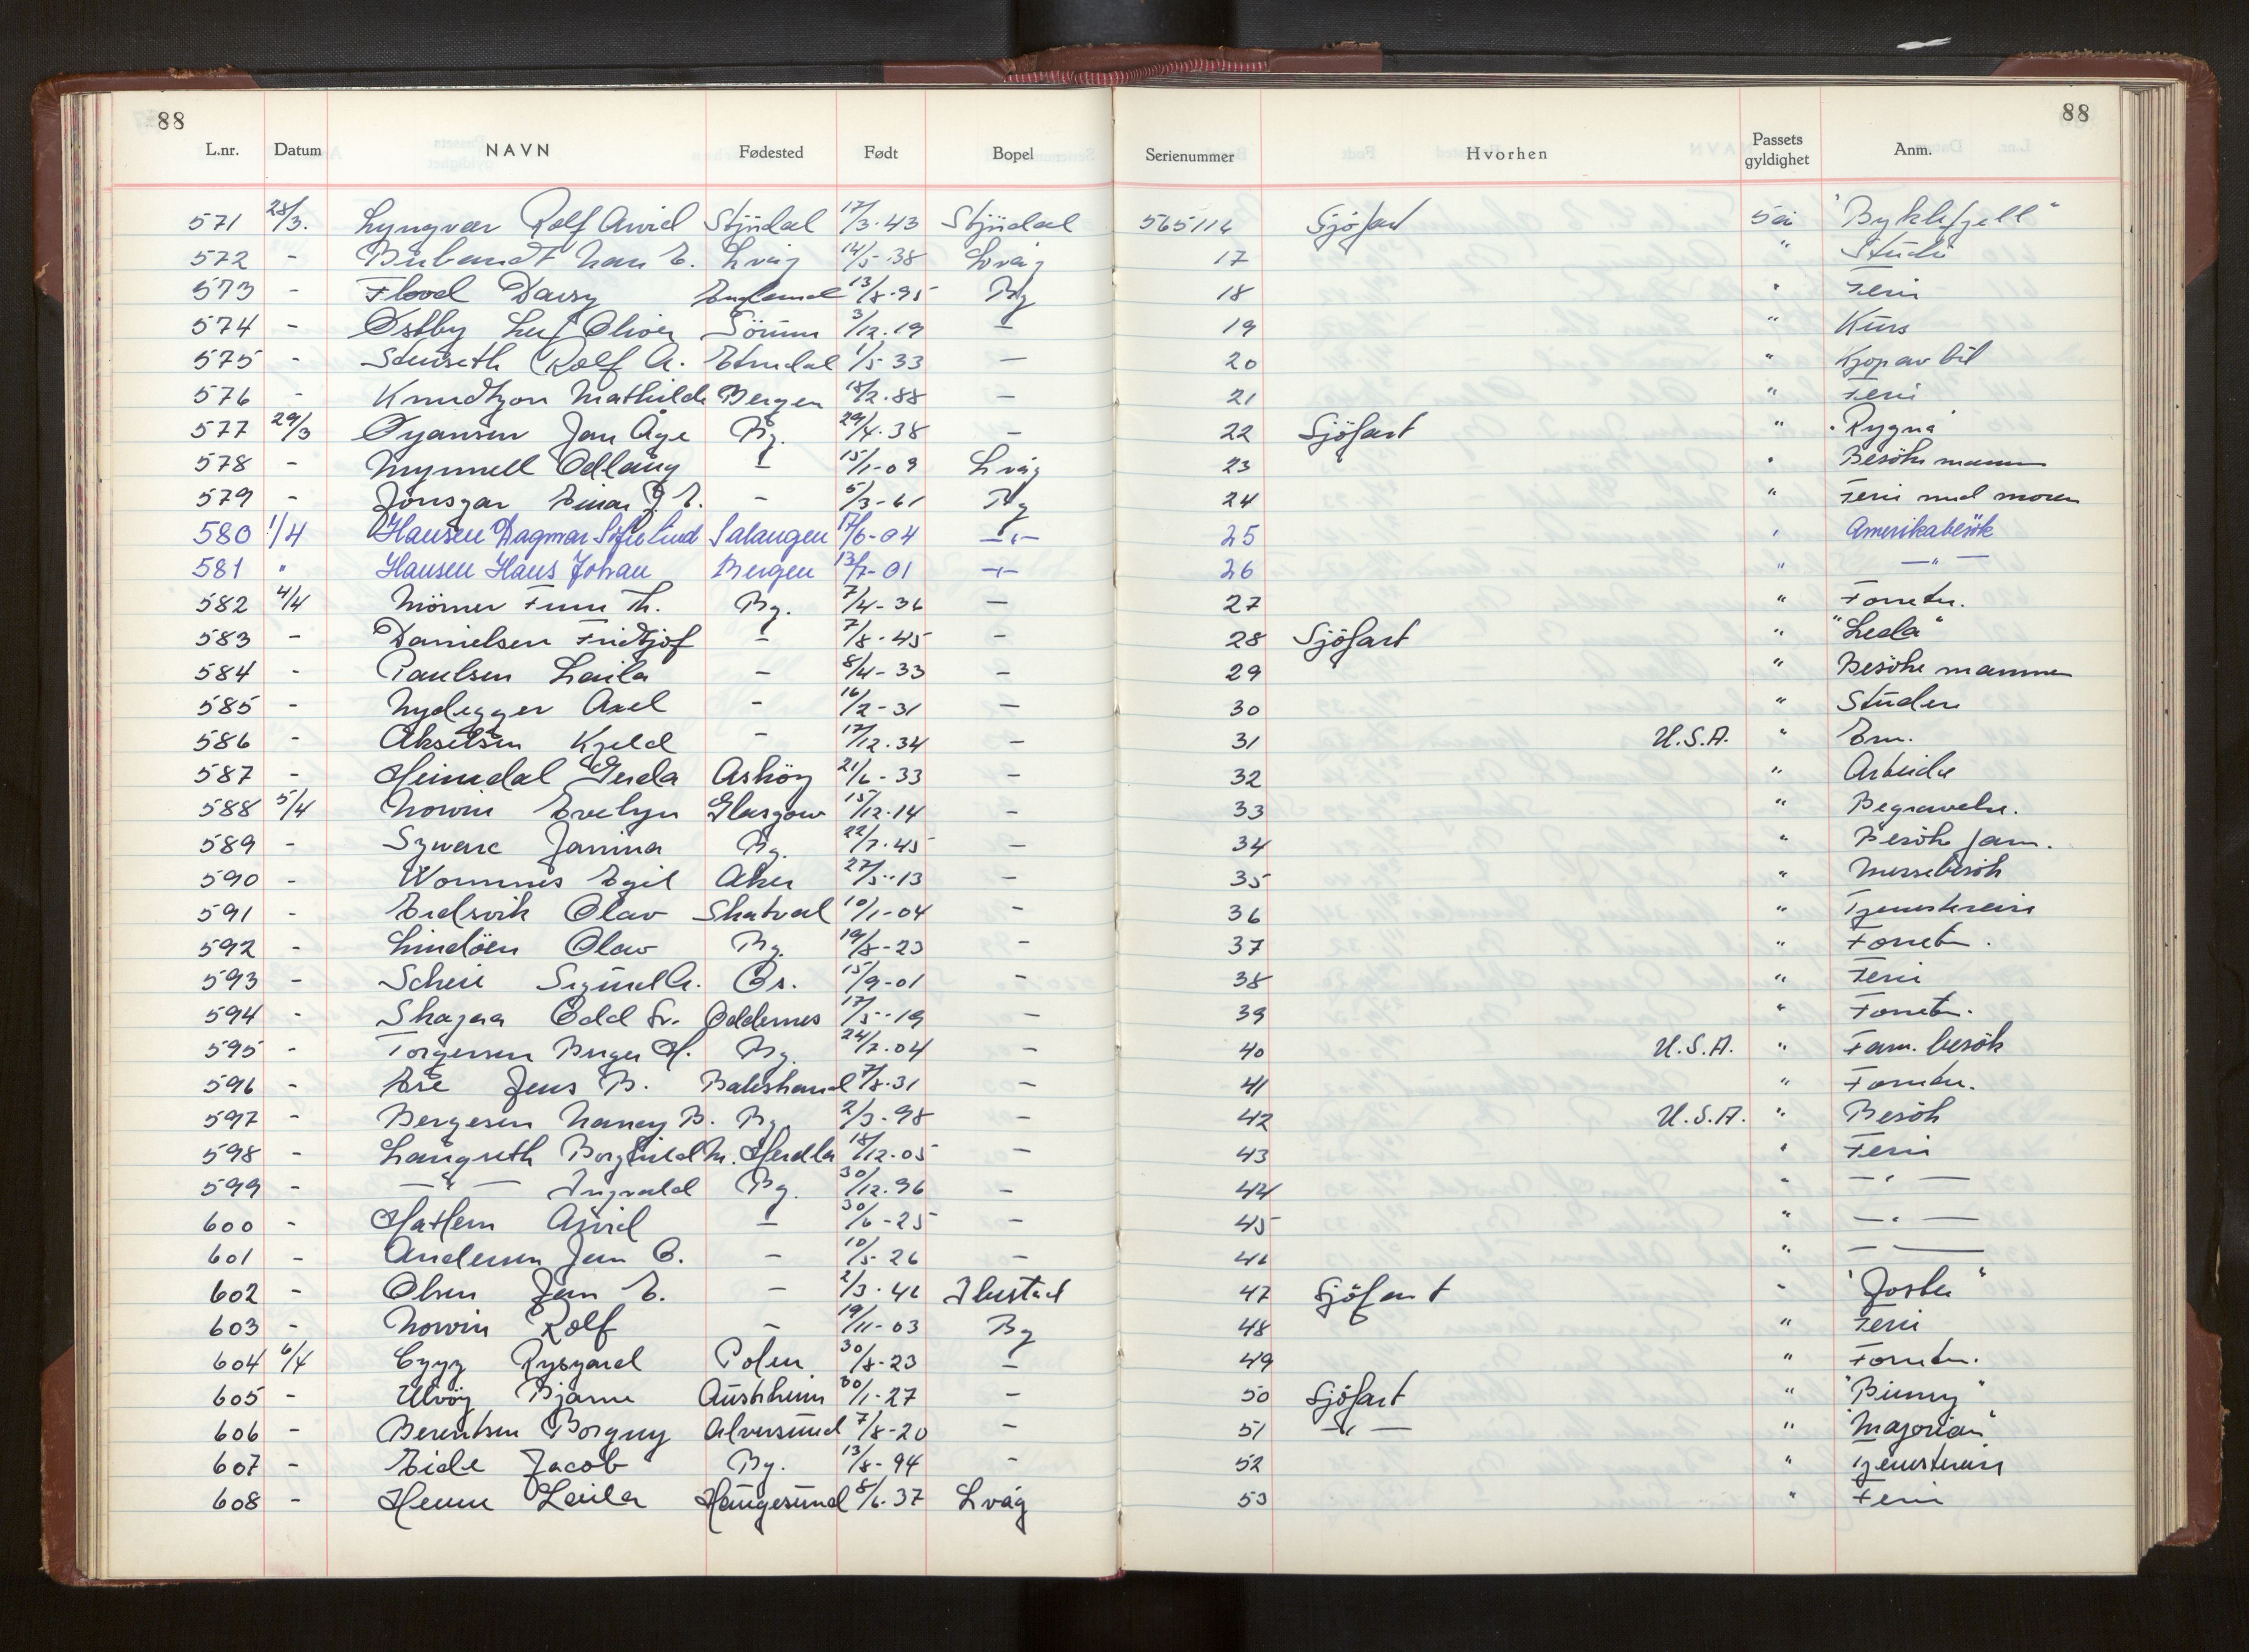 88 88
L.nr. Datum NAVN Fødested Født Bopel Serienummer Hvorhen Passets gyldighet Anm.
571 28/3. Lyngvær Rolf Arvid Stjørdal 17/3.43 Stjørdal 565116 Sjöfart 5 år "Byklefjell"
572 - L.våg 14/5.38 L.våg 17 " Studie
573 - Flood Daisy England 13/8.95 Bg 18 " Ferie
574 - Østby Leif Oliver Sörum 3/12.19 - 19 " Kurs
575 - Stenseth Rolf A. 1/5.33 - 20 " Kjøp av bil
576 - Knudtzon Mathilde Bergen 18/2.88 - 21 " Ferie
577 29/3 Øyansen Jan Åge Bg. 29/4.38 - 22 Sjöfart " "Rygna"
578 - Odlaug - 15/1-09 L våg 23 " Besöke mannen
579 - Einar J. E. - 5/3-61 Bg 24 " Ferie med moren
580 1/4 Hansen Dagmar Salangen 17/6-04 -"- 25 " Amerikabesök
581 " Hansen Hans Johan Bergen 13/7-01 -"- 26 " -"-
582 4/4 Mörner Finn Th. Bg. 7/4-36 - 27 " Forretn.
583 - Danielsen Fridtjof - 7/8.45 - 28 Sjöfart " "Leda"
584 - Paulsen Laila - 8/4-33 - 29 " Besöke mannen
585 - Nydegger Axel - 16/2-31 - 30 " Studier
586 - Akselsen Kjeld - 17/12.34 - 31 U.S.A. " Em.
587 - Heimdal Gerda Asköy 21/6-33 - 32 " Arbeide
588 5/4 Nowin Evelyn Glasgow 15/12.14 - 33 " Begravelse.
589 - Szwarc Janina Bg. 22/7.45 - 34 " Besöke fam.
590 - Wormnes Egil Aker 27/5-13 - 35 " Messebesök
591 - Eidsvik Olav Skatval 10/1-04 - 36 " Tjenestereise
592 - Lindöen Olav Bg. 19/8-23 - 37 " Forretn.
593 - Scheie Sigurd A. Os. 15/9-01 - 38 " Ferie
594 - Skagaa Odd Sv. Oddernes 17/5-19 - 39 " Forretn.
595 - Torgersen Birger H. Bg. 24/7.04 - 40 U.S.A. " Fam. besök
596 - Jens B. Balestrand 7/8.31 - 41 " Forretn.
597 - Bergesen Nancy B. Bg. 2/3-98 - 42 U.S.A. " Besök
598 - Langseth Borghild M. Herdla 18/12.05 - 43 " Ferie
599 - -"- Ingvald Bg. 30/12.96 - 44 " -"-
600 - Hatlem Arvid - 30/6-25 - 45 " -"-
601 - Andersen Jan C. - 10/5-26 - 46 " -
602 - Olsen Jan E. - 2/3.46 47 Sjöfart " "Joster"
603 - Nowin Rolf - 19/11-03 Bg 48 " Ferie
604 6/4 Polen 30/8-23 - 49 " Forretn.
605 - Ulvöy Bjarne Austrheim 30/1-27 - 50 Sjöfart " "Binny"
606 - Berentsen Borgny Alversund 7/8-20 - 51 -"- " "Majorian"
607 - Eide Jacob Bg. 13/8-94 - 52 " Tjenestereise
608 - Laila Haugesund 8/6.37 L våg 53 " Ferie